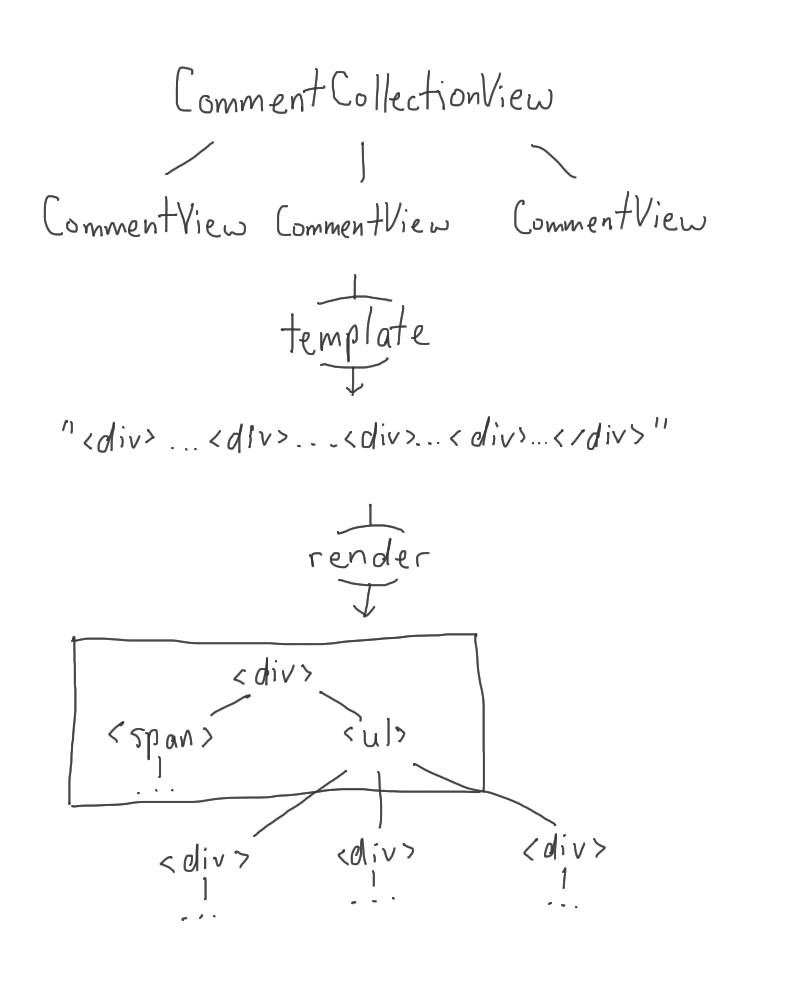 CommentCollectionView
CommentView CommentView CommentView
template
"<div> ... <div> ... <div> ... <div> ... </div>"
render
<div>
<span> <ul>
...
<div> <div> <div>
... ... ...